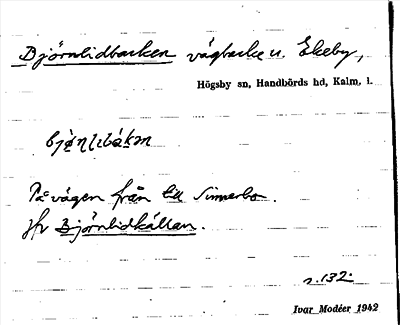 Björnlidbacken vägbacke u. Ekeby,
Högsby sn, Handbörds hd, Kalm. l.
På vägen från till Sinnerbo.
Jfr Björnlidkällan.
s. 132.
Ivar Modéer 1942